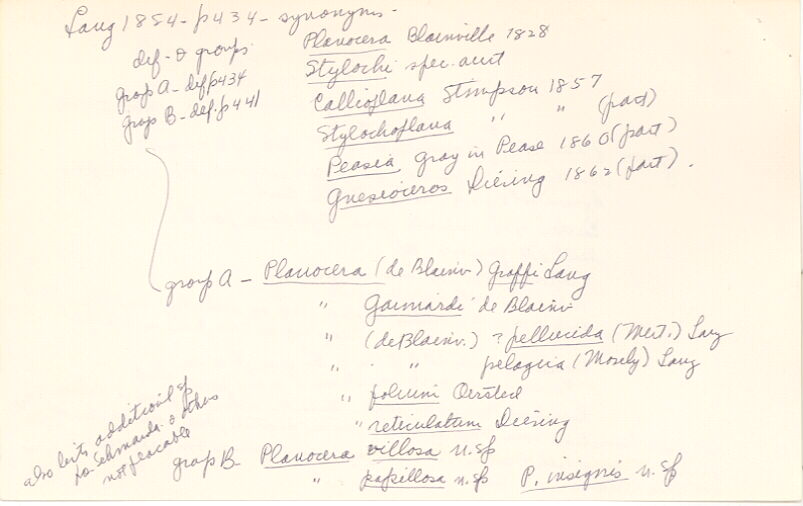 Lang 1884 - p434 - synonyms -
def - & groups
group A - def p434
group B - def. p441
Planocera Blainville 1828
Stylochi spec. aut
Callioplana Stimpson 1857
Stylochoplana " " (part)
Peasia Gray in Pease 1860 (part)
Gnesioceros Diesing 1862 (part) .
group A - Planocera (de Blainv) Graffi Lang
" Gaimardi de Blainv
" (de Blainv.) ? pellucida (Mert.) Lang
" " pelagica (Mosely) Lang
" folium Oersted
" reticulatum Diesing
group B - Planocera villosa n. sp
" papillosa n. sp P. insignis n. sp
also lists additional sp
Schmarda & others
not placable